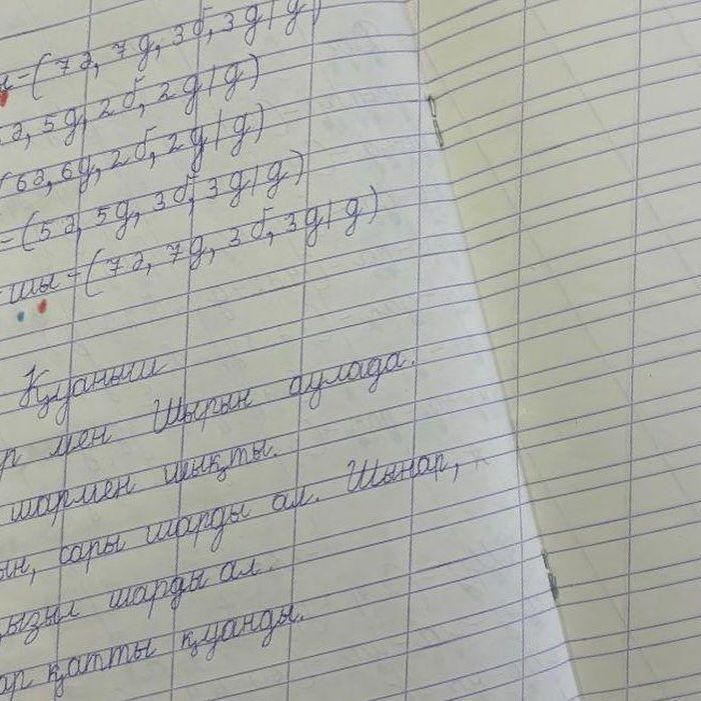 -(7д, 7д, 3б, 3д/д)
5д, 2б, 2д/д)
(6д, 6д, 2б, 2д/д)
=(5д, 5д, 3б, 3д/д)
-шы-(7д, 7д, 3б, 3д/д)
Қуаныш
р мен Шырын аулада.
шармен шықты.
ын, сары шарды ал. Шынар,
қызыл шарды ал.
ар қатты қуанды.